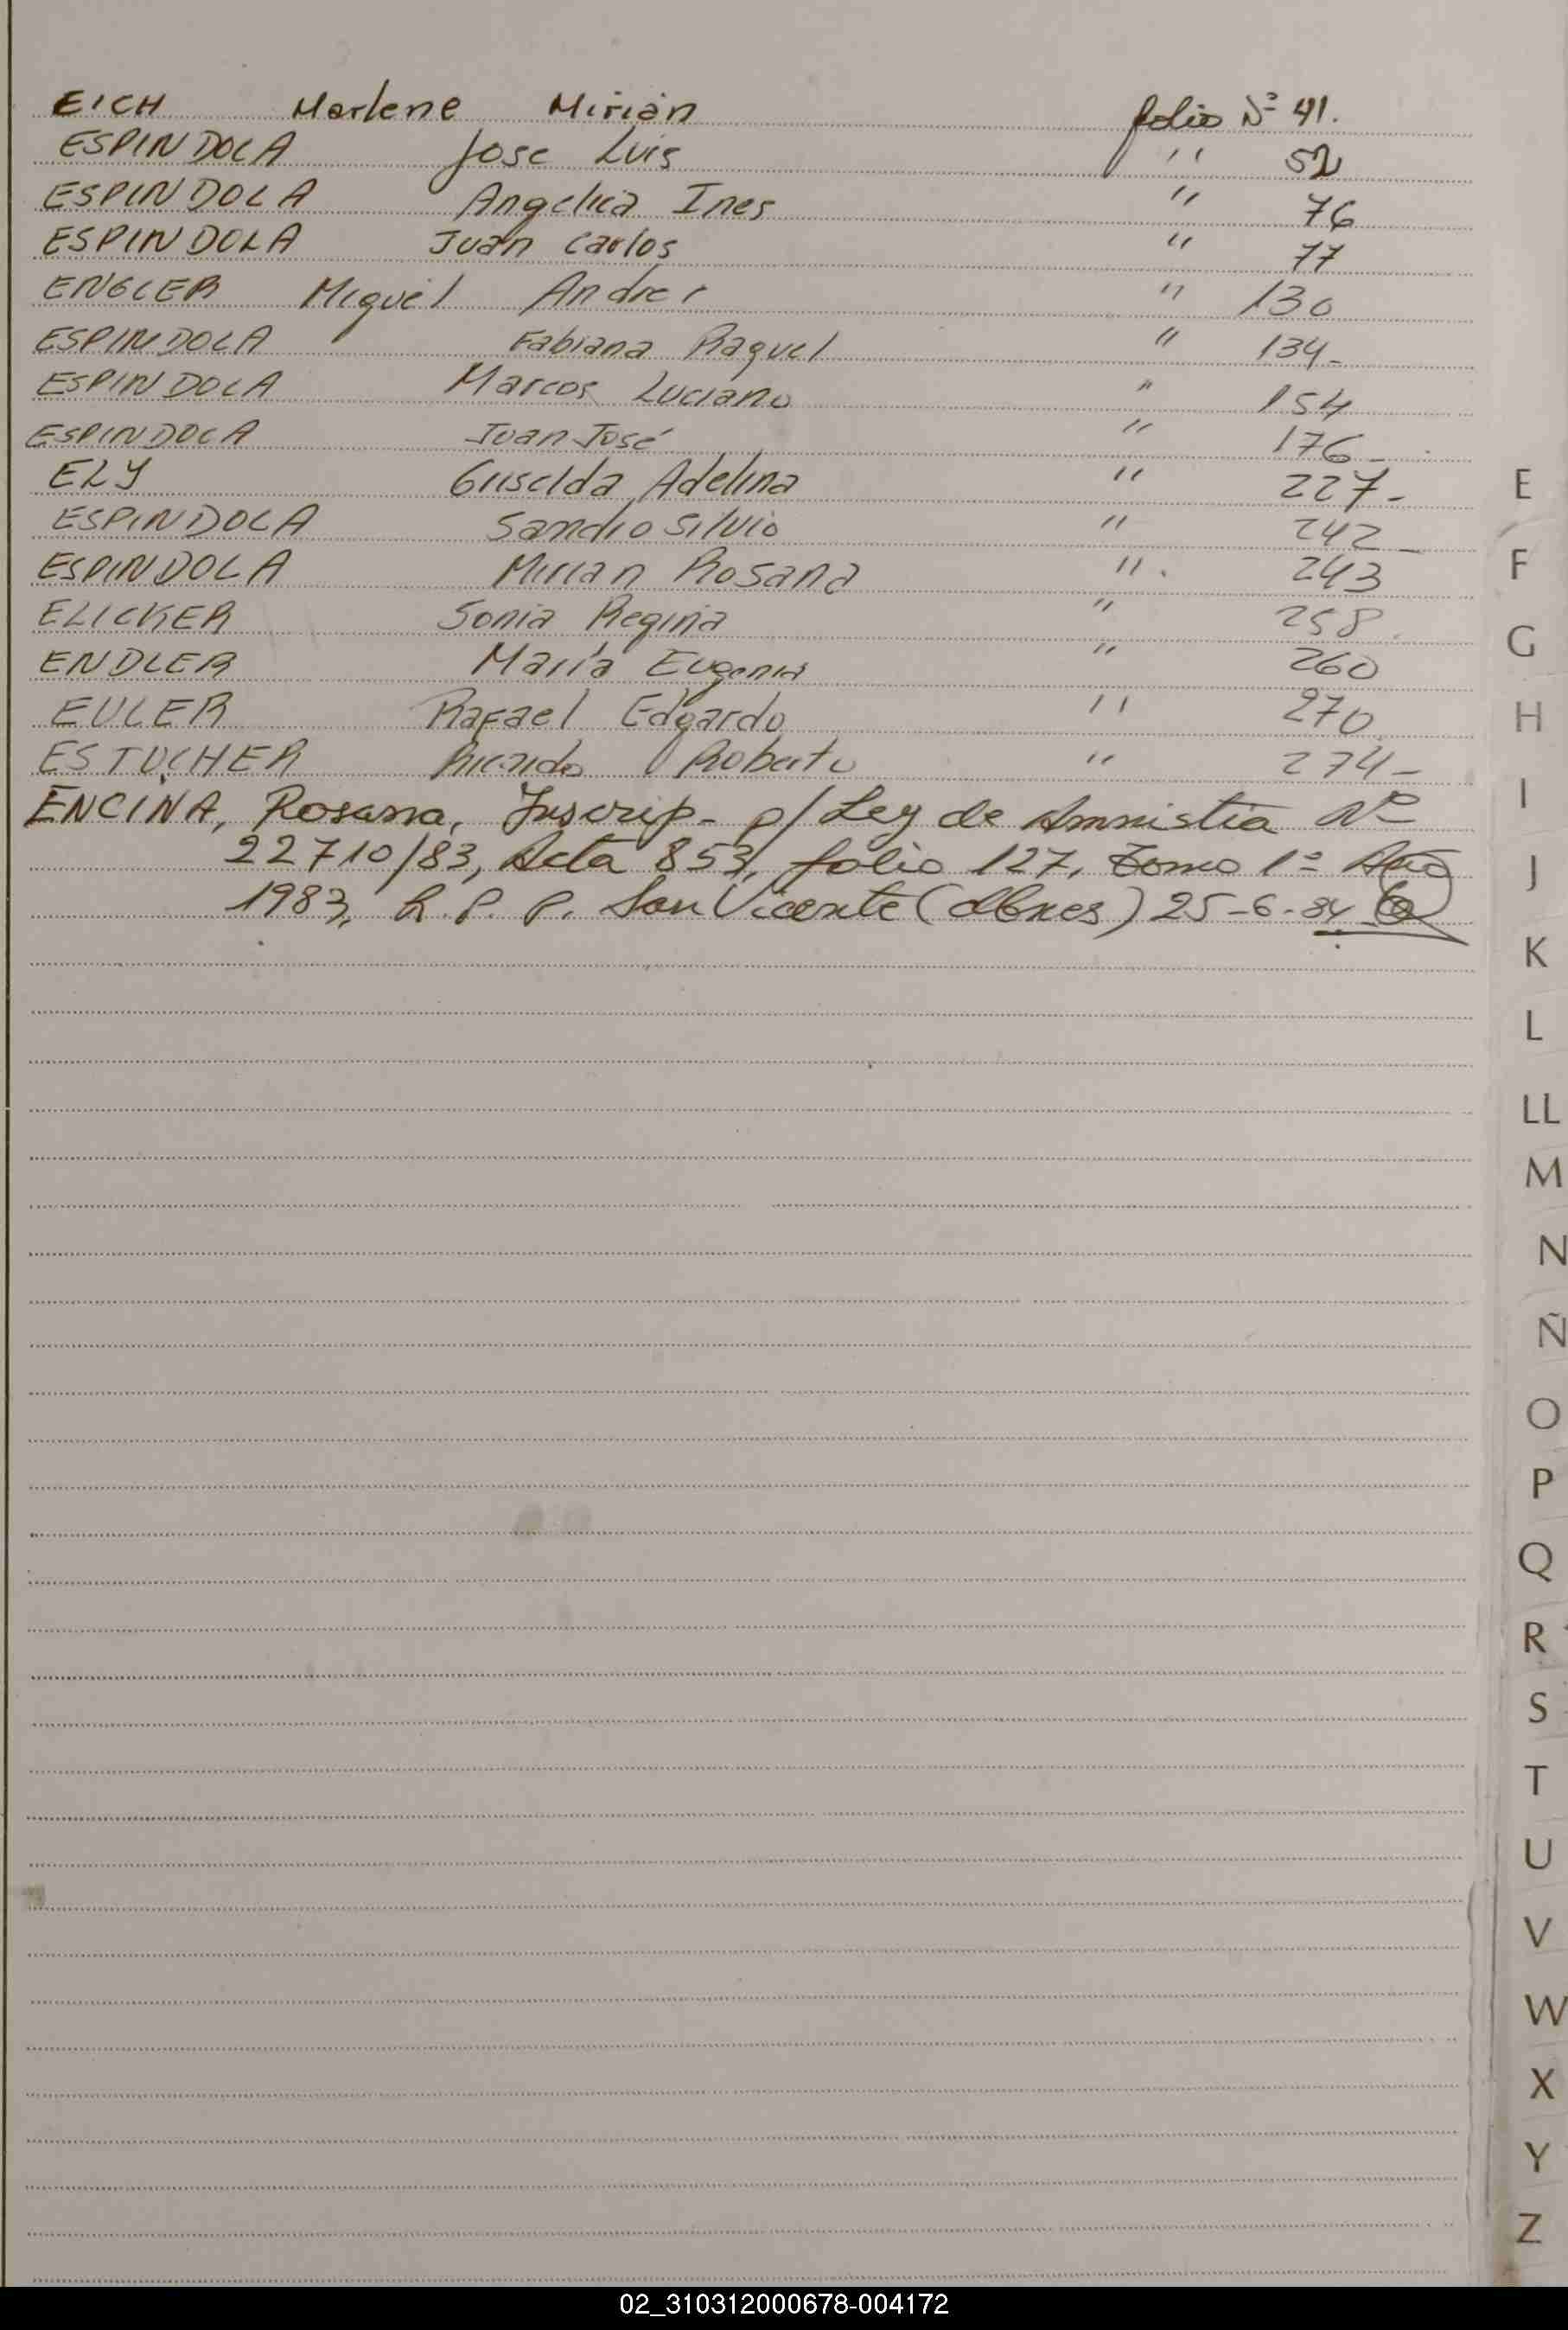 EICH Marlene Mirian folio Nº 41.
ESPINDOLA Jose Luis " 52
ESPINDOLA Angelica Ines " 76
ESPINDOLA Juan Carlos " 77
ENGLER Miguel Andres " 130
ESPINDOLA Fabiana Raquel " 134-
ESPINDOLA Marcos Luciano " 154
ESPINDOLA Juan José " 176-
ELY Griselda Adelina " 227-
ESPINDOLA Sandro Silvio " 242-
ESPINDOLA Mirian Rosana " 243
ELICKER Sonia Regina " 258.
ENDLER María Eugenia " 260
EULER Rafael Edgardo " 270
ESTUCHER Ricardo Roberto " 274-
ENCINA, Rosana, Inscrip- p/ Ley de Amnistia Nº
22710/83, Acta 853, folio 127, Tomo 1º Año
1983, R. P. P. San Vicente ( ) 25-6-84
E
F
G
H
I
J
K
L
LL
M
N
Ñ
O
P
Q
R
S
T
U
V
W
X
Y
Z
02_310312000678-004172